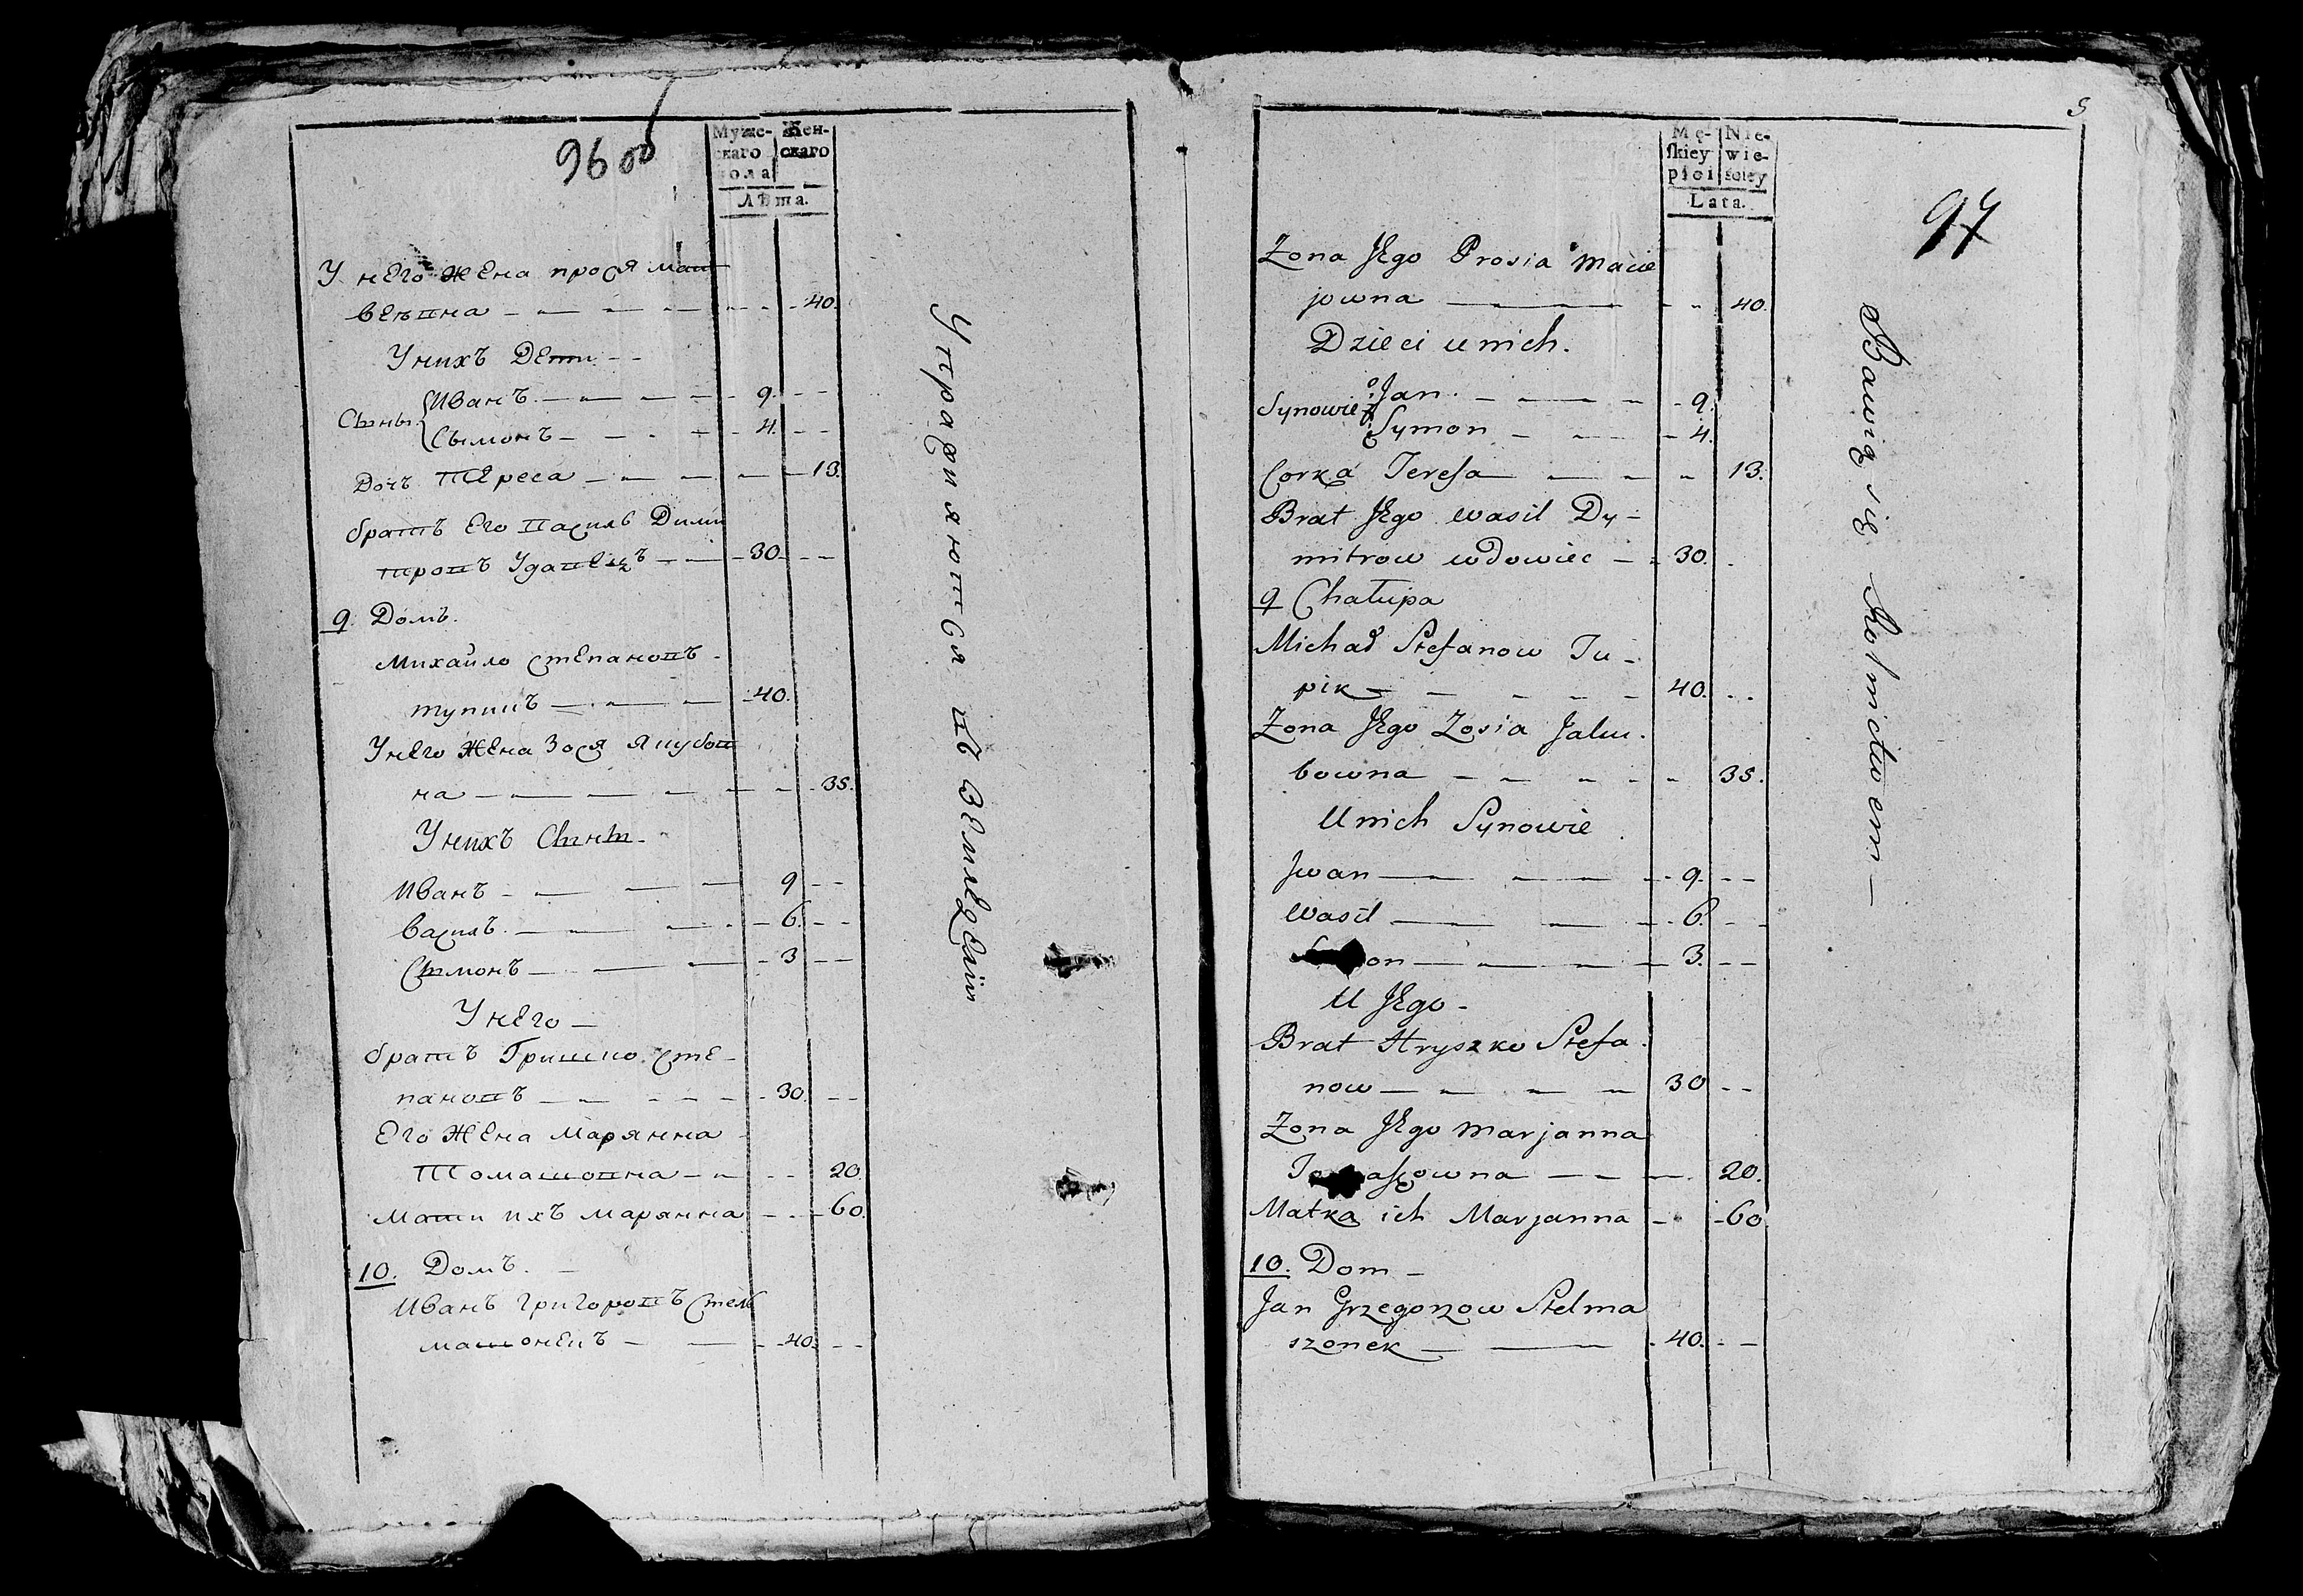 96 об
Мужс- Жен-
скаго скаго
пола
Лѣта.
У него жена прося мат
веѣвна - - - 40.
У нихъ Дети - -
Сыны Иванъ - - - 9. - -
Сымонъ - - - 4. - -
Дочь Тереса - - - 13.
братъ Его Василь Дими
тровъ Удавецъ - - 30. - -
9. Домъ.
Михайло Степановъ -
тупикъ - - - 40.
У него жена Зося Якубов
на - - - 35.
У нихъ Сыны -
Иванъ - - - 9 - -
Василь - - - 6. - -
Сымонъ - - - 3 - -
У него -
братъ Гришко Сте-
пановъ - - - 30. - -
Его жена Марянна -
Томашовна - - - 20.
Мати ихъ Марянна - - - 60.
10. Домъ. -
Иванъ Григоровъ Стель
машонекъ - - - 40. - -
Упражняются въ Земледелии
5
97
Mę- Nie-
ſkiey wie-
płci ściey
Lata.
Zona Jego Prosia Macie
jowna - - - 40.
Dzieci u nich.
Synowie Jan - - - 9.
Symon - - - 4.
Corka Tereſa - - - 13.
Brat Jego Wasil Dy-
mitrow wdowiec - - 30. -
9 Chałupa
Michał Stefanow Tu-
pik - - - 40. - -
Zona Jego Zosia Jaku-
bowna - - - 35.
U nich Synowie
Iwan - - - 9. - -
Wasil - - - 6. - -
on - - - 3. - -
U Jego -
Brat Hryszko Stefa-
now - - - 30 - -
Zona Jego Marjanna
To aſzowna - - - 20.
Matka ich Marjanna - - 60
10. Dom -
Jan Grzegorzow Stelma
szonek - - - 40. - -
Bawią się Rolnictwem -